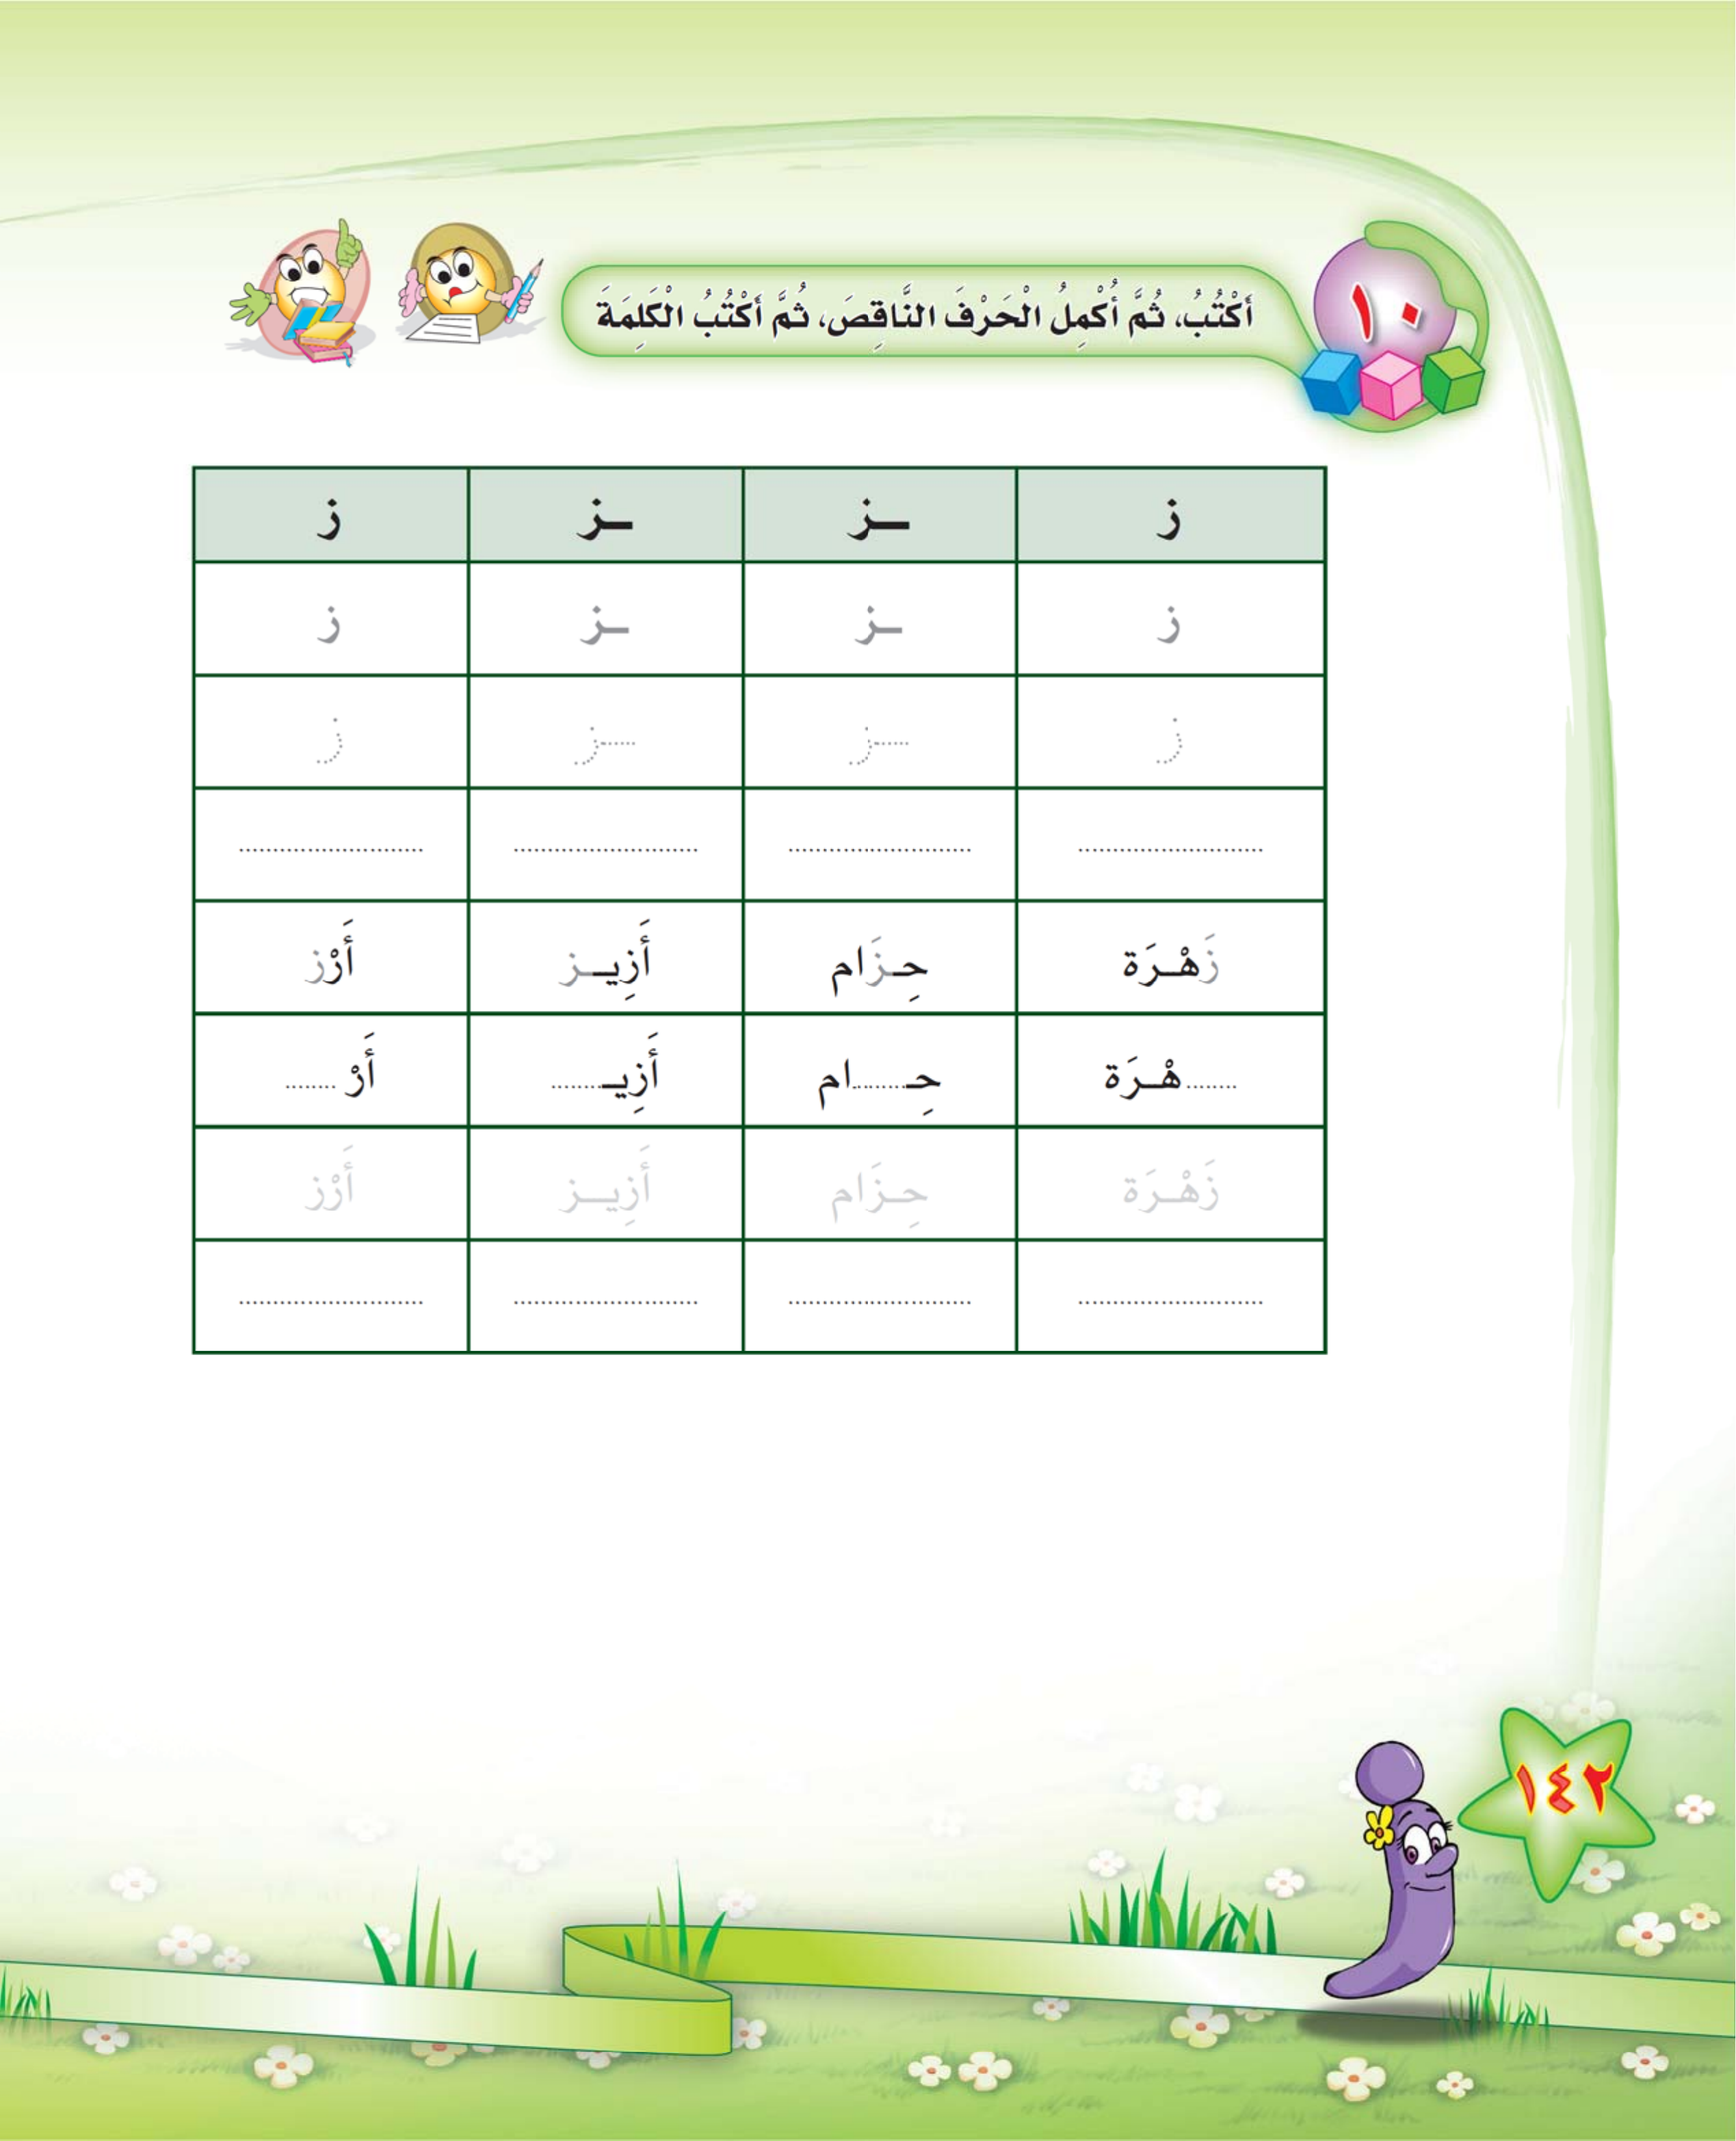 ١٠
أَكْتُبُ، ثُمَّ أُكْمِلُ الْحَرْفَ النَّاقِصَ، ثُمَّ أَكْتُبُ الْكَلِمَةَ
ز ـز ـز ز
ز ـز ـز ز
ز ـز ـز ز
.......................... .......................... .......................... ..........................
زَهْـرَة حِـزَام أَزِيــز أَرْز
........هْـرَة حِـ........ام أَزِيـ........ أَرْ ........
زَهْـرَة حِـزَام أَزِيــز أَرْز
.......................... .......................... .......................... ..........................
١٤٢